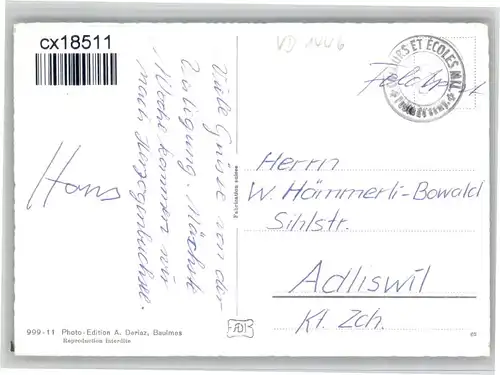 cx18511
VD 1446
COURS ET ÉCOLES MIL.
Feldpost
Viele Grüsse von der
Verlegung. Nächste
Woche kommen wir
nach Herzogenbuchsee.
Hans
Fabrication suisse
Herrn
W. Hämmerli-Bowald
Sihlstr.
Adliswil
Kt. Zch.
999-11 Photo-Edition A. Deriaz, Baulmes
Reproduction interdite